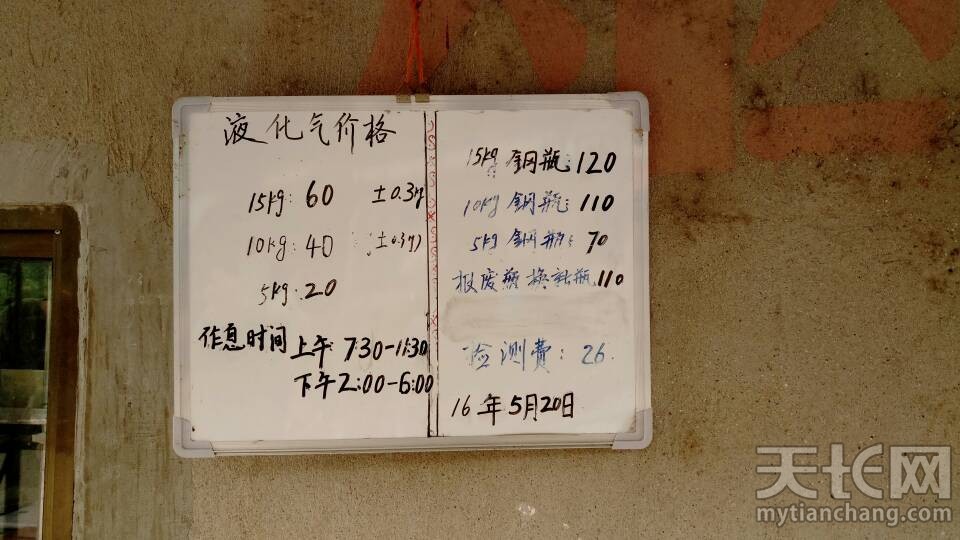 液化气价格
15kg: 60 ±0.3kg
10kg: 40 (±0.3kg)
5kg: 20
作息时间 上午: 7:30-11:30
下午2:00-6:00
15kg 钢瓶: 120
10kg 钢瓶: 110
5kg 钢瓶: 70
报废瓶换新瓶 110
检测费: 26.
16年5月20日
天长网
mytianchang.com